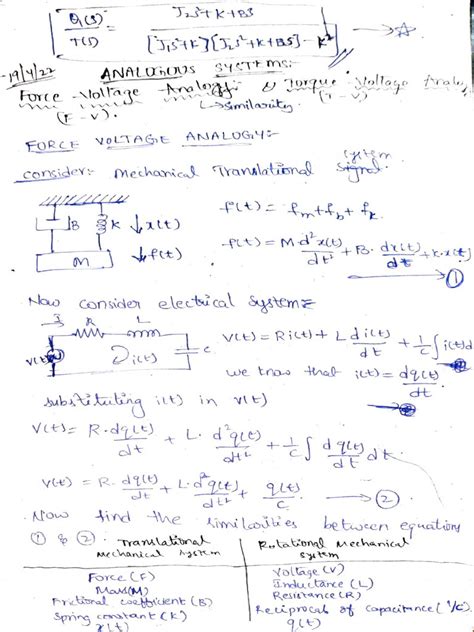 θ₁(s) / T(s) = J₂s²+K+BS / [J₁s²+K][J₂s²+K+BS] - K² → A
19/4/22 ANALOGOUS SYSTEMS:-
Force - Voltage Analogy & Torque Voltage Analogy
(F-V). ↳ similarity (T-V)
FORCE VOLTAGE ANALOGY:-
consider:- Mechanical Translational system
B K ↓x(t) f(t) = fm+fb+fk
M ↓f(t) f(t) = M d²x(t)/dt² + B. dx(t)/dt + K.x(t)
→ ①
Now consider electrical system:
I R L
V(t) i(t) C V(t) = Ri(t) + L di(t)/dt + 1/C ∫i(t)d
we know that i(t) = dq(t)/dt
substituting i(t) in V(t)
V(t) = R. dq(t)/dt + L. d²q(t)/dt² + 1/C ∫ dq(t)/dt dt.
V(t) = R. dq(t)/dt + L. d²q(t)/dt² + q(t)/C → ②
Now find the similarities between equations
① & ②
Translational Mechanical system | Rotational Mechanical system
Force (F) | Voltage (V)
Mass(M) | Inductance (L)
Frictional coefficient (B) | Resistance (R)
Spring constant (K) | Reciprocal of capacitance (1/C)
x(t) | q(t)